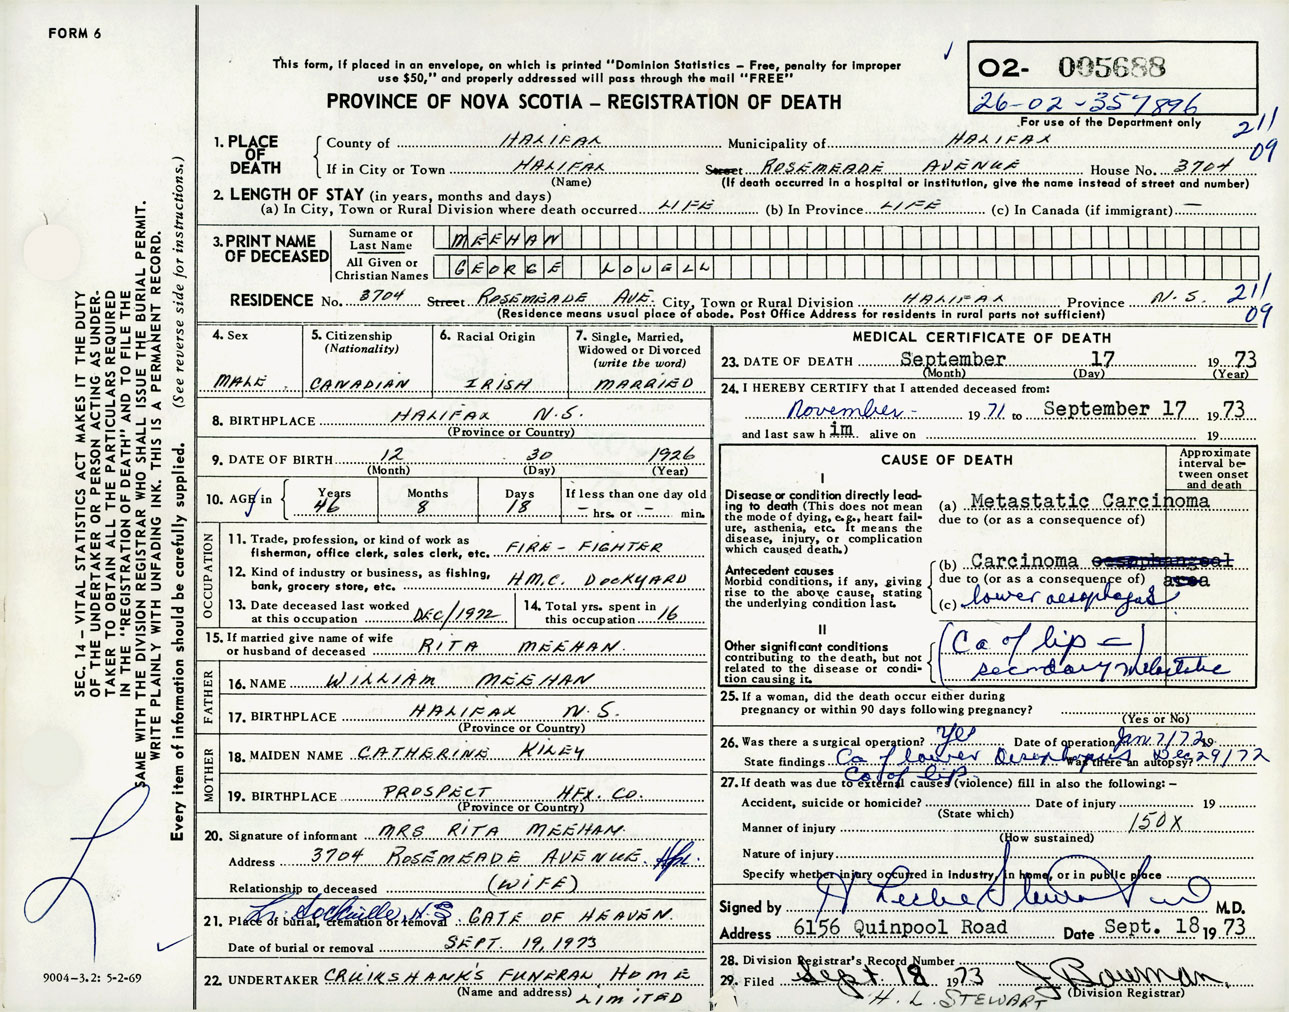 FORM 6
This form, if placed in an envelope, on which is printed "Dominion Statistics – Free, penalty for improper
use $50," and properly addressed will pass through the mail "FREE"
PROVINCE OF NOVA SCOTIA – REGISTRATION OF DEATH
O2- 005688
26-02-357896
For use of the Department only
211
09
1. PLACE OF DEATH
County of HALIFAX Municipality of HALIFAX
If in City or Town HALIFAX Street ROSEMEADE AVENUE House No. 3704
(Name) (If death occurred in a hospital or institution, give the name instead of street and number)
2. LENGTH OF STAY (in years, months and days)
(a) In City, Town or Rural Division where death occurred LIFE (b) In Province LIFE (c) In Canada (if immigrant) —
3. PRINT NAME OF DECEASED
Surname or Last Name MEEHAN
All Given or Christian Names GEORGE LOUELL
RESIDENCE No. 3704 Street ROSEMEADE AVE. City, Town or Rural Division HALIFAX Province N.S.
(Residence means usual place of abode. Post Office Address for residents in rural parts not sufficient)
211
09
4. Sex
MALE
5. Citizenship
(Nationality)
CANADIAN
6. Racial Origin
IRISH
7. Single, Married,
Widowed or Divorced
(write the word)
MARRIED
8. BIRTHPLACE HALIFAX N.S.
(Province or Country)
9. DATE OF BIRTH 12 30 1926
(Month) (Day) (Year)
10. AGE in
Years Months Days If less than one day old
46 8 18 – hrs. or – min.
OCCUPATION
11. Trade, profession, or kind of work as
fisherman, office clerk, sales clerk, etc. FIRE-FIGHTER
12. Kind of industry or business, as fishing,
bank, grocery store, etc. H.M.C. DOCKYARD
13. Date deceased last worked
at this occupation DEC/1972
14. Total yrs. spent in
this occupation 16
15. If married give name of wife
or husband of deceased RITA MEEHAN.
FATHER
16. NAME WILLIAM MEEHAN
17. BIRTHPLACE HALIFAX N.S.
(Province or Country)
MOTHER
18. MAIDEN NAME CATHERINE KILEY
19. BIRTHPLACE PROSPECT HFX. CO.
(Province or Country)
20. Signature of informant MRS RITA MEEHAN.
Address 3704 ROSEMEADE AVENUE. Hfx.
Relationship to deceased (WIFE)
21. Place of burial, cremation or removal GATE OF HEAVEN.
Lr. Sackville, N.S
Date of burial or removal SEPT. 19, 1973
22. UNDERTAKER CRUIKSHANK'S FUNERAL HOME
(Name and address) LIMITED
MEDICAL CERTIFICATE OF DEATH
23. DATE OF DEATH September 17 1973
(Month) (Day) (Year)
24. I HEREBY CERTIFY that I attended deceased from:
November 1971 to September 17 1973
and last saw him alive on 19
CAUSE OF DEATH
Approximate
interval be-
tween onset
and death
I
Disease or condition directly lead-
ing to death (This does not
mean the mode of dying, e.g., heart fail-
ure, asthenia, etc. It means the
disease, injury, or complication
which caused death.)
(a) Metastatic Carcinoma
due to (or as a consequence of)
Antecedent causes
Morbid conditions, if any, giving
rise to the above cause, stating
the underlying condition last.
(b) Carcinoma oesophangeal
due to (or as a consequence of) area
(c) lower oesophagus
II
Other significant conditions
contributing to the death, but not
related to the disease or condi-
tion causing it.
(Ca of lip =)
secondary metastatic
25. If a woman, did the death occur either during
pregnancy or within 90 days following pregnancy?
(Yes or No)
26. Was there a surgical operation? Yes Date of operation Jan 7/72 19
State findings Ca of lower Oesophagus Was there an autopsy? Dec 29/72
Ca of lip
27. If death was due to external causes (violence) fill in also the following: –
Accident, suicide or homicide? Date of injury 19
(State which)
Manner of injury 150X
(How sustained)
Nature of injury
Specify whether injury occurred in Industry, in home, or in public place
Signed by M.D.
Address 6156 Quinpool Road Date Sept. 18 1973
28. Division Registrar's Record Number
29. Filed Sept 18 1973 J Bowman
(Division Registrar)
H. L. STEWART
SEC. 14 – VITAL STATISTICS ACT MAKES IT THE DUTY
OF THE UNDERTAKER OR PERSON ACTING AS UNDER-
TAKER TO OBTAIN ALL THE PARTICULARS REQUIRED
IN THE "REGISTRATION OF DEATH" AND TO FILE THE
SAME WITH THE DIVISION REGISTRAR WHO SHALL ISSUE THE BURIAL PERMIT.
WRITE PLAINLY WITH UNFADING INK. THIS IS A PERMANENT RECORD.
Every item of information should be carefully supplied. (See reverse side for instructions.)
9004-3.2: 5-2-69